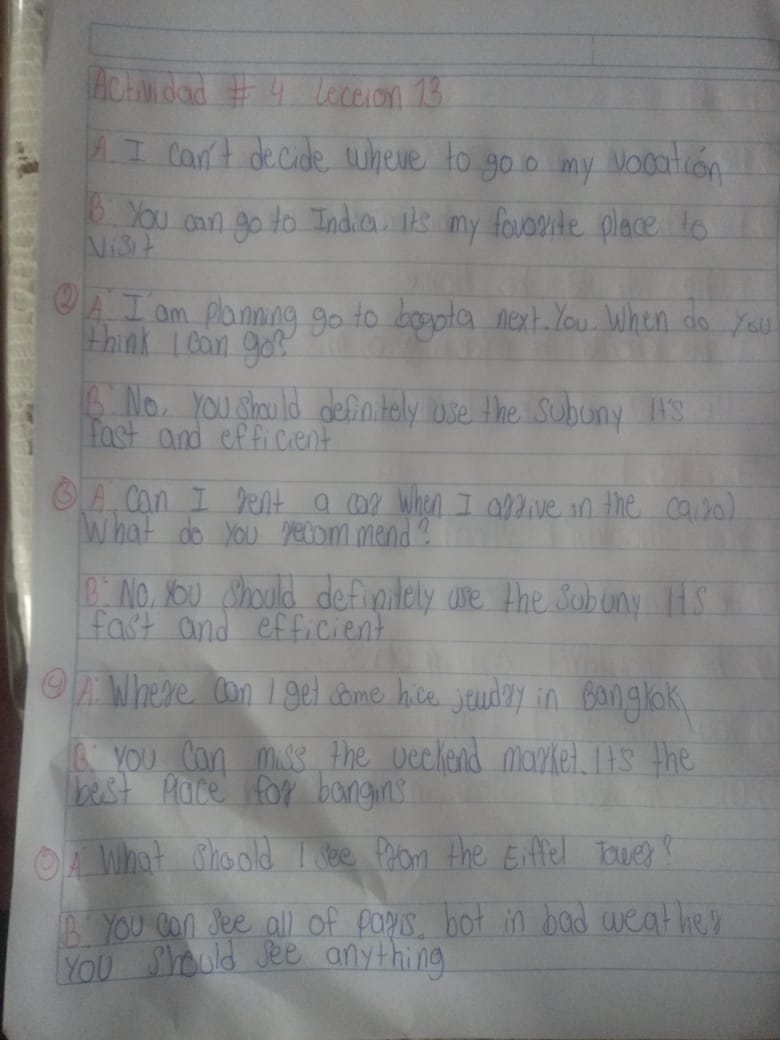 Actividad # 4 Leccion 13
A I can't decide wheve to go o my vocatión
B: You can go to India. It's my favorite place to
visit
② A: I am planning go to bogota next. You. When do you
think I can go?
B: No, you should definitely use the subuny It's
fast and efficient
③ A, can I rent a car when I arrive in the cairo)
What do you recommend?
B: No, you should definitely use the Subuny Its
fast and efficient
④ A: Where can I get some hice jewdry in Bangkok
B: you can miss the veekend market. Its the
best Place for bangins
⑤ A: What shoold I see from the Eiffel Tower?
B: You can see all of paris. bot in bad weather
you should see anything